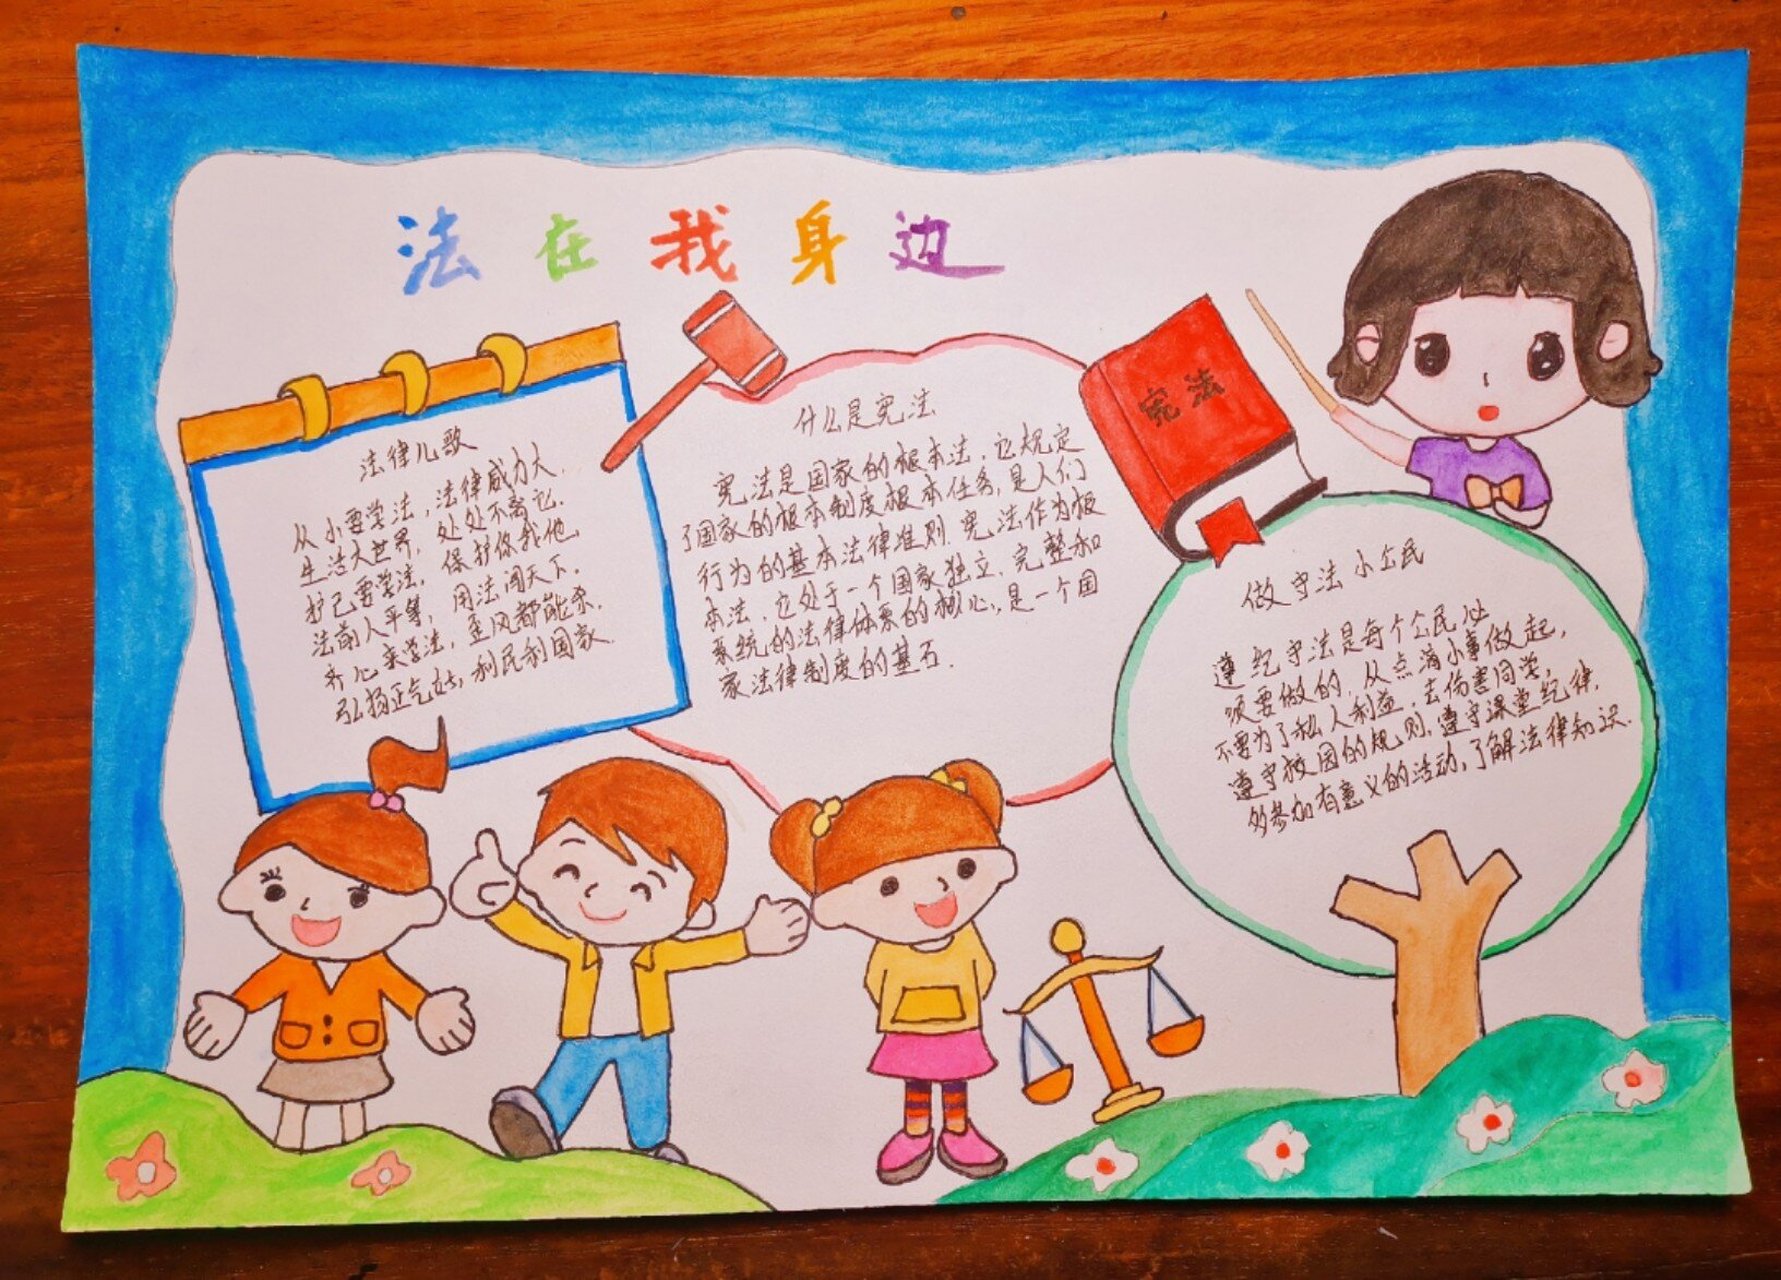 法在我身边
法律儿歌
从小要学法,法律威力大.
生活大世界,处处不离它.
护己要学法,保护你我他,
法前人平等,用法闯天下.
齐心来学法,歪风都能杀.
弘扬正气站,利民利国家.
什么是宪法
宪法是国家的根本法,它规定
了国家的根本制度根本任务,是人们
行为的基本法律准则.宪法作为根
本法,它处于一个国家独立、完整和
系统的法律体系的核心,是一个国
家法律制度的基石.
宪法
做守法小公民
遵纪守法是每个公民必
须要做的,从点滴小事做起,
不要为了私人利益,去伤害同学,
遵守校园的规则,遵守课堂纪律.
多参加有意义的活动,了解法律知识.